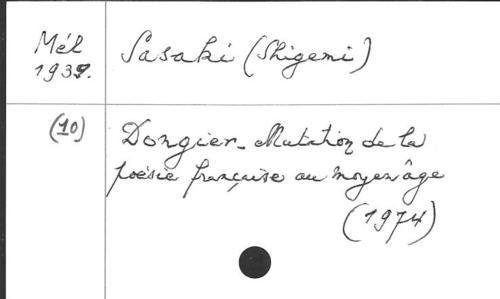 Mél
1937.
Sasaki (Shigemi)
(10)
Dongier_ Mutation de la
poésie française au moyen âge
(1974)